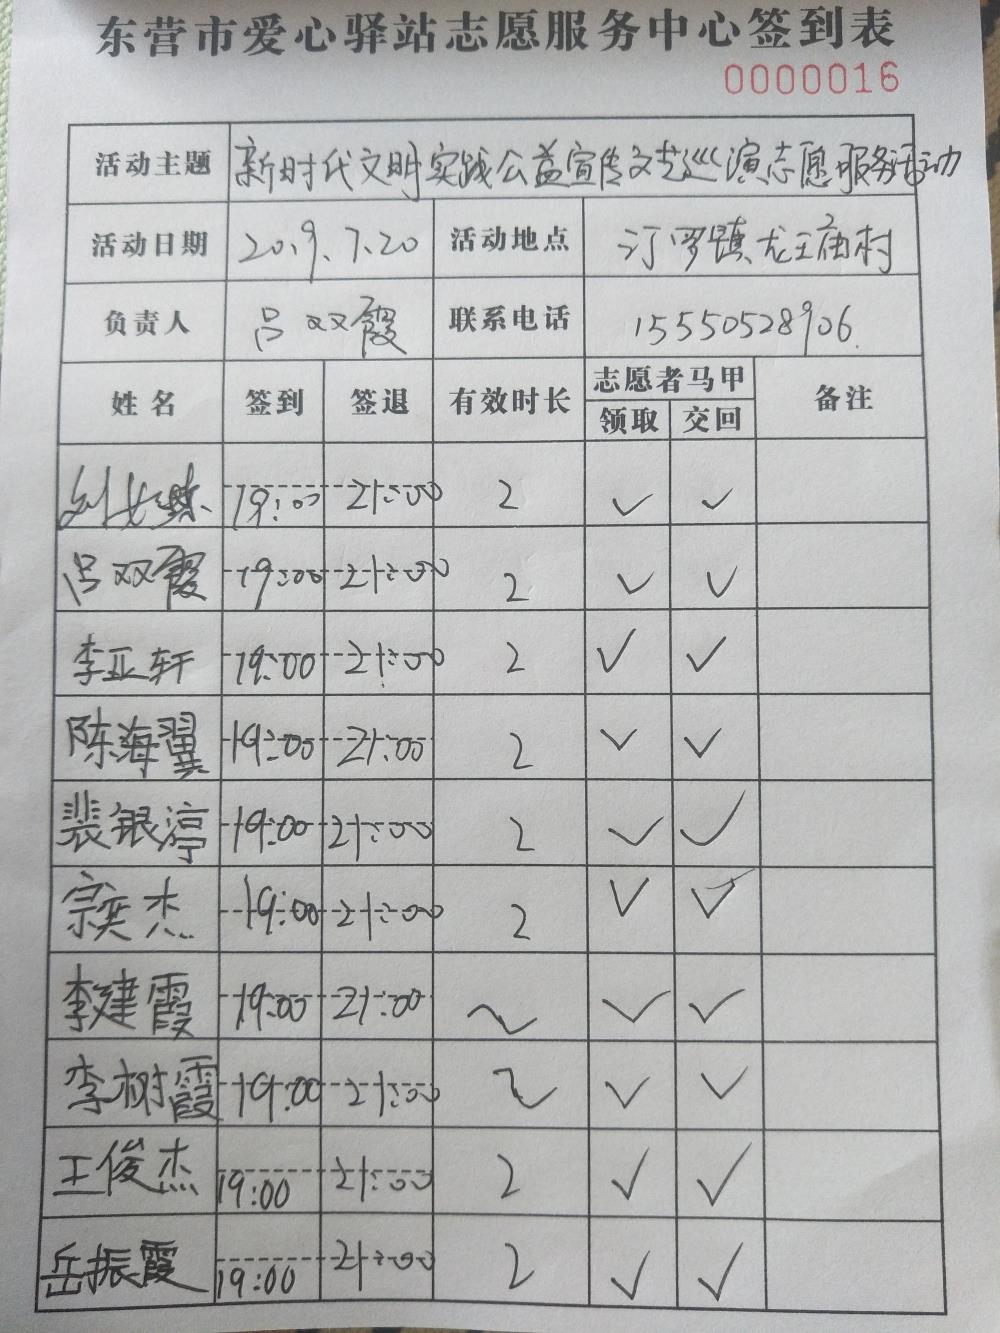 东营市爱心驿站志愿服务中心签到表
0000016
活动主题 新时代文明实践公益宣传文艺巡演志愿服务活动
活动日期 2019.7.20 活动地点 汀罗镇龙王庙村
负责人 吕双霞 联系电话 15550528906.
姓名 签到 签退 有效时长 志愿者马甲 备注
领取 交回
19:00 21:00 2 ✓ ✓
吕双霞 19:00 21:00 2 ✓ ✓
李亚轩 19:00 21:00 2 ✓ ✓
陈海翼 19:00 21:00 2 ✓ ✓
裴银淳 19:00 21:00 2 ✓ ✓
宗奕杰 19:00 21:00 2 ✓ ✓
李建霞 19:00 21:00 2 ✓ ✓
李树霞 19:00 21:00 2 ✓ ✓
王俊杰 19:00 21:00 2 ✓ ✓
岳振霞 19:00 21:00 2 ✓ ✓